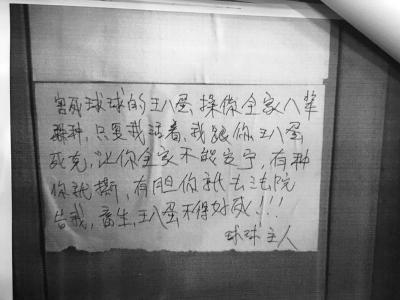 害死球球的王八蛋操你全家八辈
杂种,只要我活着,我跟你王八蛋
死克,让你全家不能安宁,有种
你就撕,有胆你就去法院
告我,畜生,王八蛋不得好死!!!
球球主人